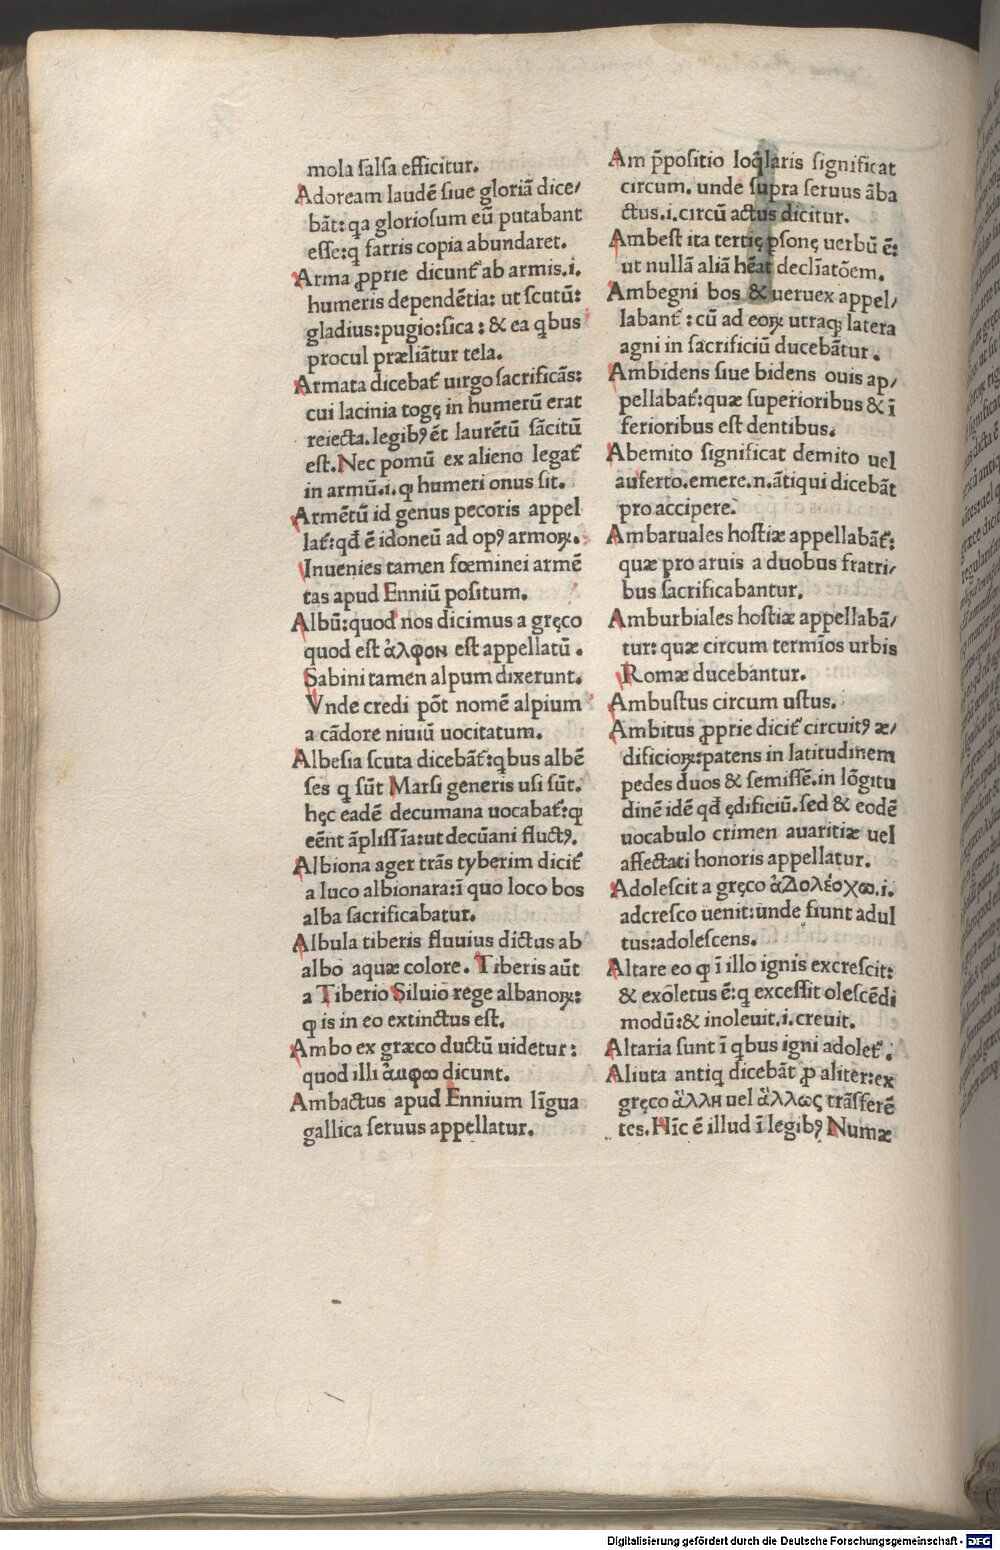 mola salsa efficitur.
Adoream laudē siue gloriā dice/
bāt: qa gloriosum eū putabant
esse: q farris copia abundaret.
Arma ꝓprie dicunt᷑ ab armis.i.
humeris dependētia: ut scutū:
gladius: pugio: sica: & ea qbus
procul præliātur tela.
Armata dicebat᷑ uirgo sacrificās:
cui lacinia togę in humerū erat
reiecta. legibꝰ ēt laurētū sācitū
est. Nec pomū ex alieno legat᷑
in armū.i. ꝙ humeri onus sit.
Armētū id genus pecoris appel
lat᷑: qđ ē idoneū ad opꝰ armoꝝ.
Inuenies tamen fœminei armē
tas apud Enniū positum.
Albū: quod nos dicimus a gręco
quod est ἀλφον est appellatū.
Sabini tamen alpum dixerunt.
Vnde credi pōt nomē alpium
a cādore niuiū uocitatum.
Albesia scuta dicebāt᷑: qbus albē
ses q sūt Marsi generis usi sūt.
hęc eadē decumana uocabat᷑: ꝙ
eēnt āplissīa: ut decūani fluctꝰ.
Albiona ager trās tyberim dicit᷑
a luco albionara: ī quo loco bos
alba sacrificabatur.
Albula tiberis fluuius dictus ab
albo aquæ colore. Tiberis aūt
a Tiberio Siluio rege albanoꝝ:
ꝙ is in eo extinctus est.
Ambo ex græco ductū uidetur:
quod illi ἀμφω dicunt.
Ambactus apud Ennium līgua
gallica seruus appellatur.
Am p̄positio loq̄laris significat
circum. unde supra seruus āba
ctus.i. circū actus dicitur.
Ambest ita tertię ꝑsonę uerbū ē:
ut nullā aliā hēat declīatōem.
Ambegni bos & ueruex appel/
labant᷑: cū ad eoꝝ utraqꝫ latera
agni in sacrificiū ducebātur.
Ambidens siue bidens ouis ap/
pellabat᷑: quæ superioribus & ī
ferioribus est dentibus.
Abemito significat demito uel
auferto. emere.n. ātiqui dicebāt
pro accipere.
Ambaruales hostiæ appellabāt᷑:
quæ pro aruis a duobus fratri/
bus sacrificabantur.
Amburbiales hostiæ appellabā/
tur: quæ circum termīos urbis
Romæ ducebantur.
Ambustus circum ustus.
Ambitus ꝓprie dicit᷑ circuitꝰ æ/
dificioꝝ: patens in latitudinem
pedes duos & semissē. in lōgitu
dinē idē qđ ędificiū. sed & eodē
uocabulo crimen auaritiæ uel
affectati honoris appellatur.
Adolescit a gręco ἀδολέσχω.i.
adcresco uenit: unde fiunt adul
tus: adolescens.
Altare eo ꝙ ī illo ignis excrescit:
& exoletus ē: q excessit olescēdi
modū: & inoleuit.i. creuit.
Altaria sunt ī qbus igni adolet᷑.
Aliuta antiq dicebāt ꝓ aliter: ex
gręco ἄλλη uel ἄλλως trāsferē
tes. Hīc ē illud ī legibꝰ Numæ
Digitalisierung gefördert durch die Deutsche Forschungsgemeinschaft - DFG